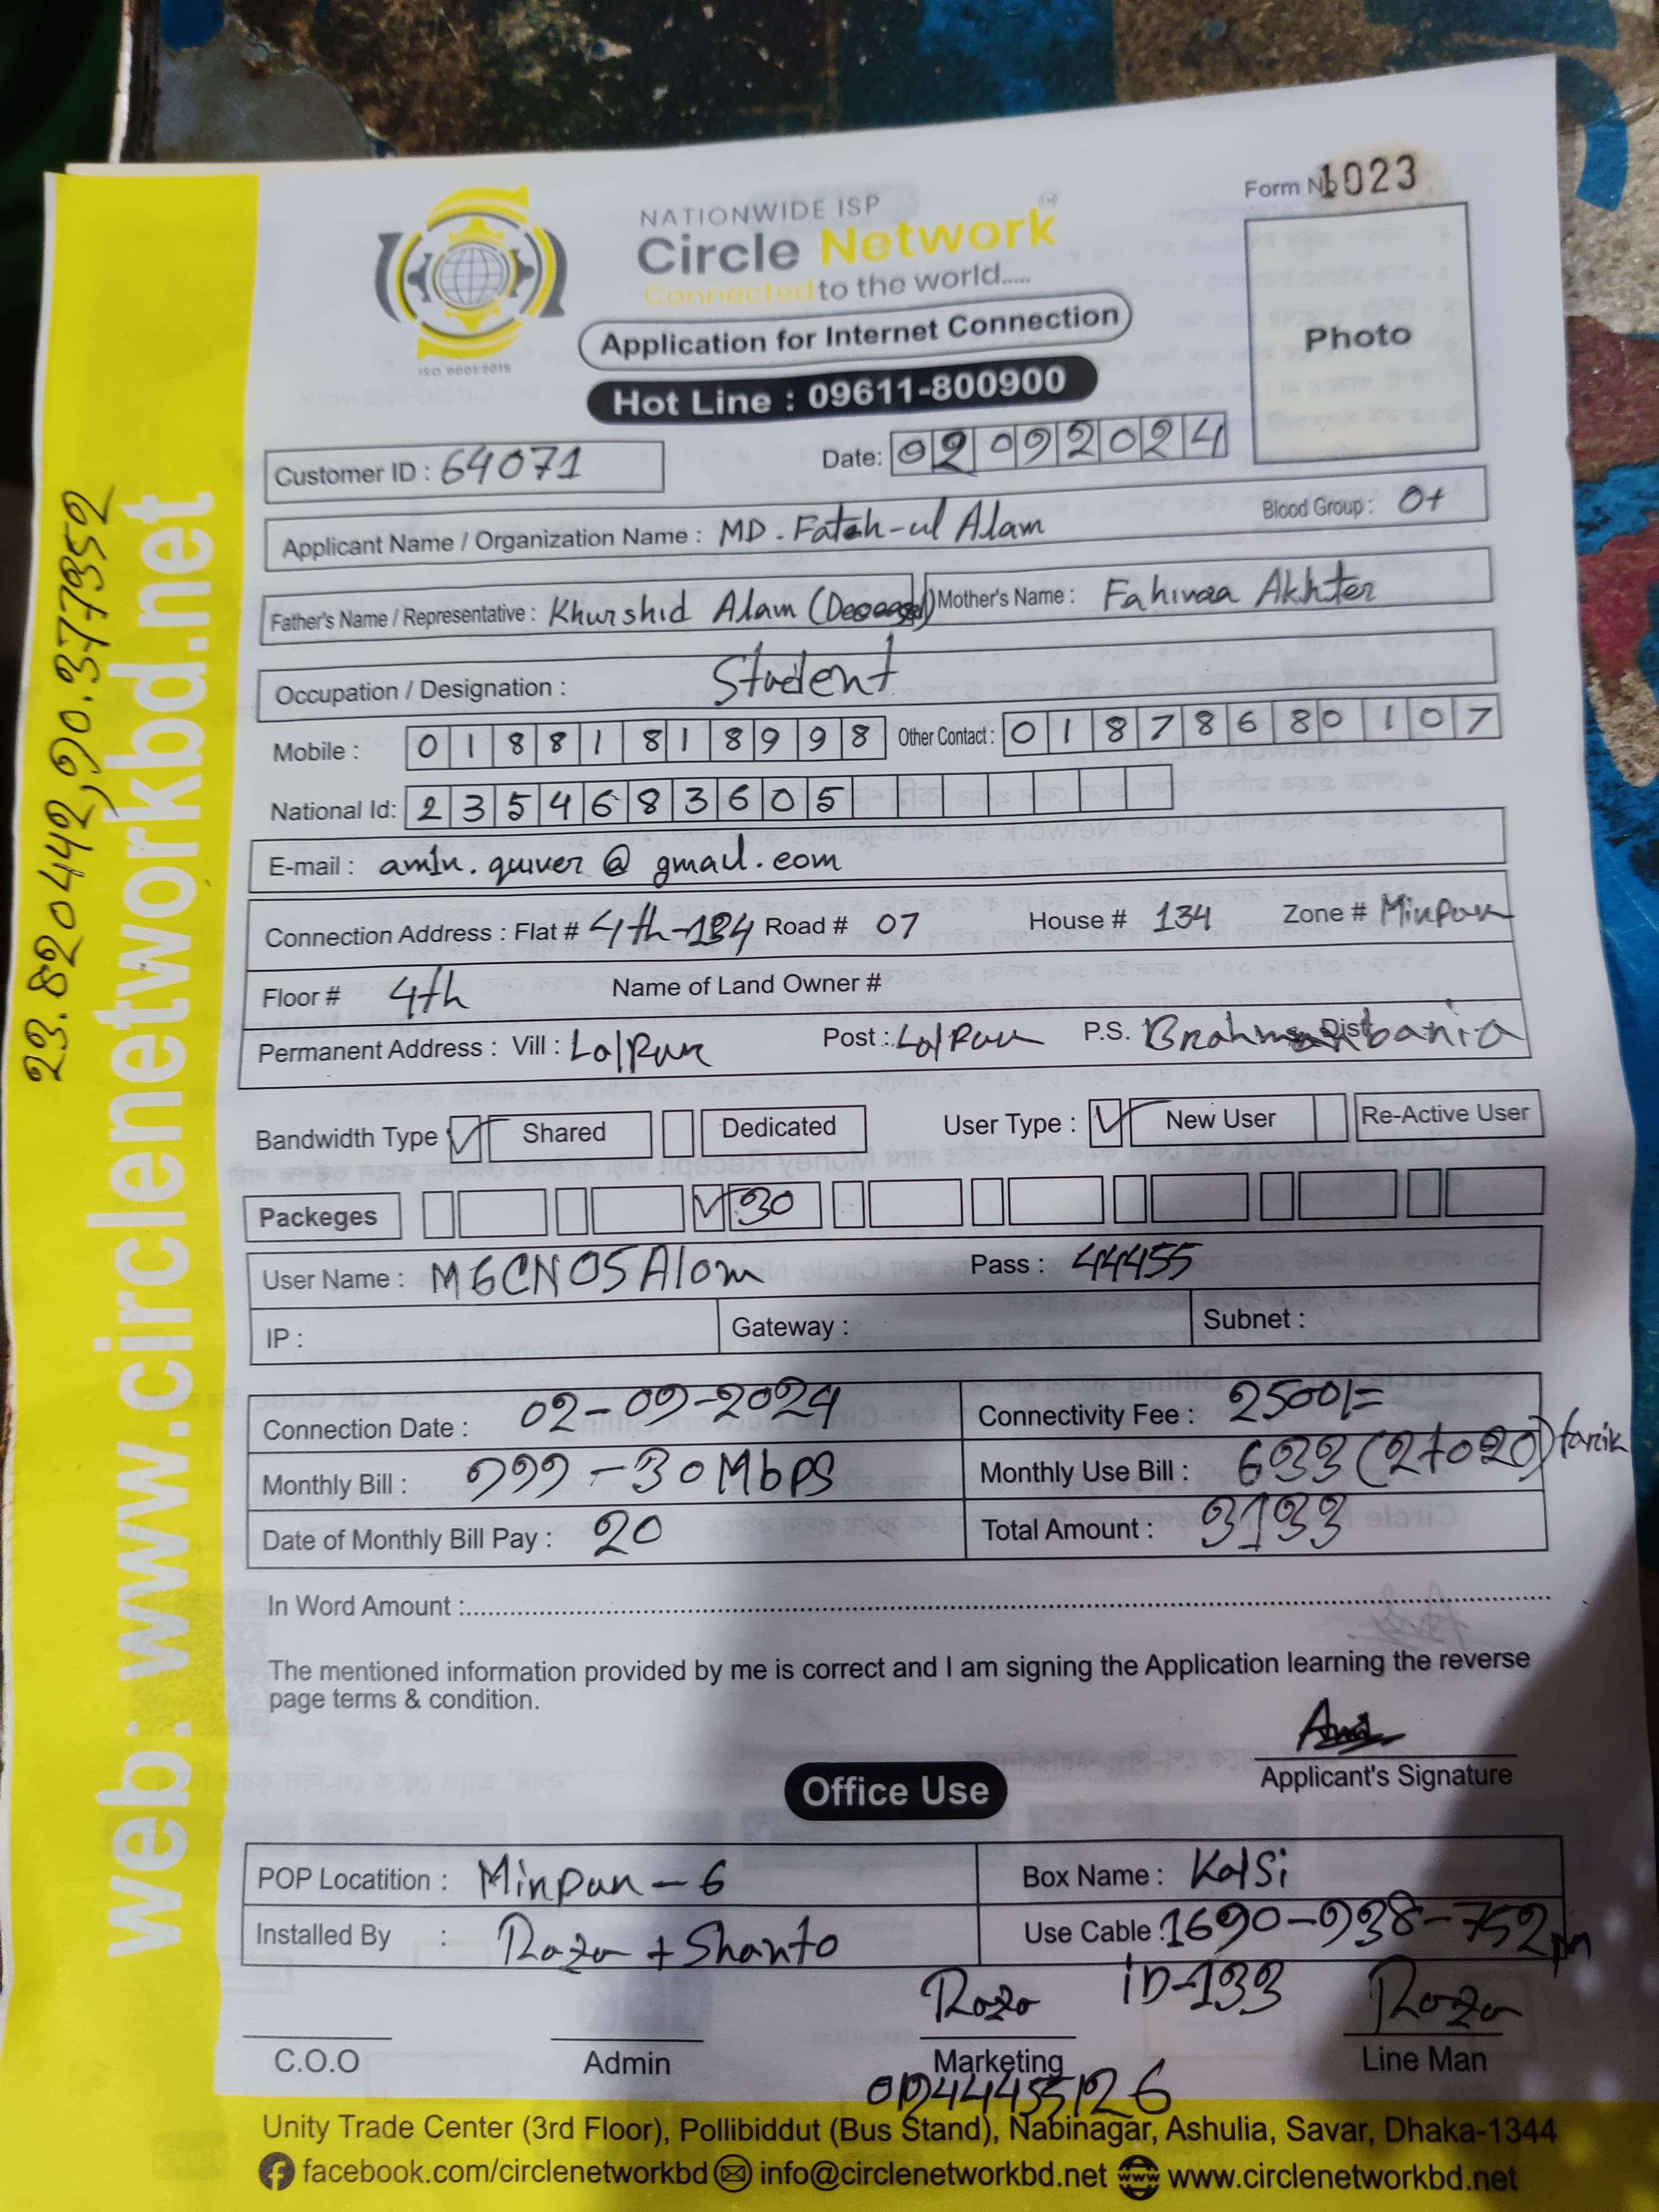 Form No 1023
NATIONWIDE ISP
Circle Network TM
Connected to the world.....
ISO 9001:2015
Application for Internet Connection
Photo
Hot Line : 09611-800900
Customer ID : 64071 Date: 02 09 2024
Applicant Name / Organization Name : MD. Fatah-ul Alam Blood Group : O+
Father's Name / Representative : Khurshid Alam Mother's Name : Akhter
Occupation / Designation : Student
Mobile : 01881818998 Other Contact : 01878680107
National Id: 2354683605
E-mail : am1n.quiver@gmail.com
Connection Address : Flat # 4th-134 Road # 07 House # 134 Zone # Mirpur
Floor # 4th Name of Land Owner #
Permanent Address : Vill : Lalpur Post : Lalpur P.S. Dist
Bandwidth Type Shared Dedicated User Type : New User Re-Active User
Packeges 30
User Name : MGCN05Alom Pass : 44455
IP : Gateway : Subnet :
Connection Date : 02-09-2024 Connectivity Fee : 2500/=
Monthly Bill : 999 - 30 Mbps Monthly Use Bill : 633 (2to20) tarik
Date of Monthly Bill Pay : 20 Total Amount : 3133
In Word Amount :
The mentioned information provided by me is correct and I am signing the Application learning the reverse
page terms & condition.
Applicant's Signature
Office Use
POP Locatition : Mirpur-6 Box Name : Kalsi
Installed By : Raza + Shanto Use Cable : 1690-938-752m
Raza ID-133 Raza
C.O.O Admin Marketing Line Man
Unity Trade Center (3rd Floor), Pollibiddut (Bus Stand), Nabinagar, Ashulia, Savar, Dhaka-1344
facebook.com/circlenetworkbd info@circlenetworkbd.net www.circlenetworkbd.net
web: www.circlenetworkbd.net
23.820442,90.377352